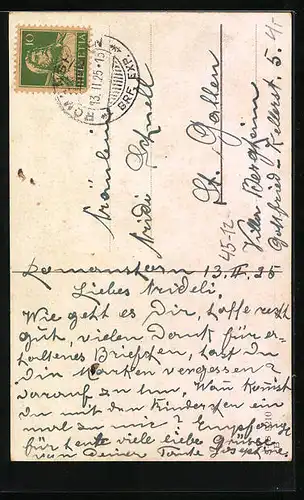 10
HELVETIA
13.II.25
BRF. EXP.
Fräulein
Fridi Schnell
St. Gallen
Villa Bergheim
Gottfried-Kellerstr. 5.
45-12
Romanshorn 13.II.25
Liebes Frideli.
Wie geht es Dir, hoffe recht
gut, vielen Dank für er-
haltenes Briefchen, hast Du
Die Marken vergessen?
darauf zu tun, Wann kommst
Du mit den Kinderchen ein
mal zu mir? Empfang
für heute viele liebe Grüsse
von Deiner Tante Josephine